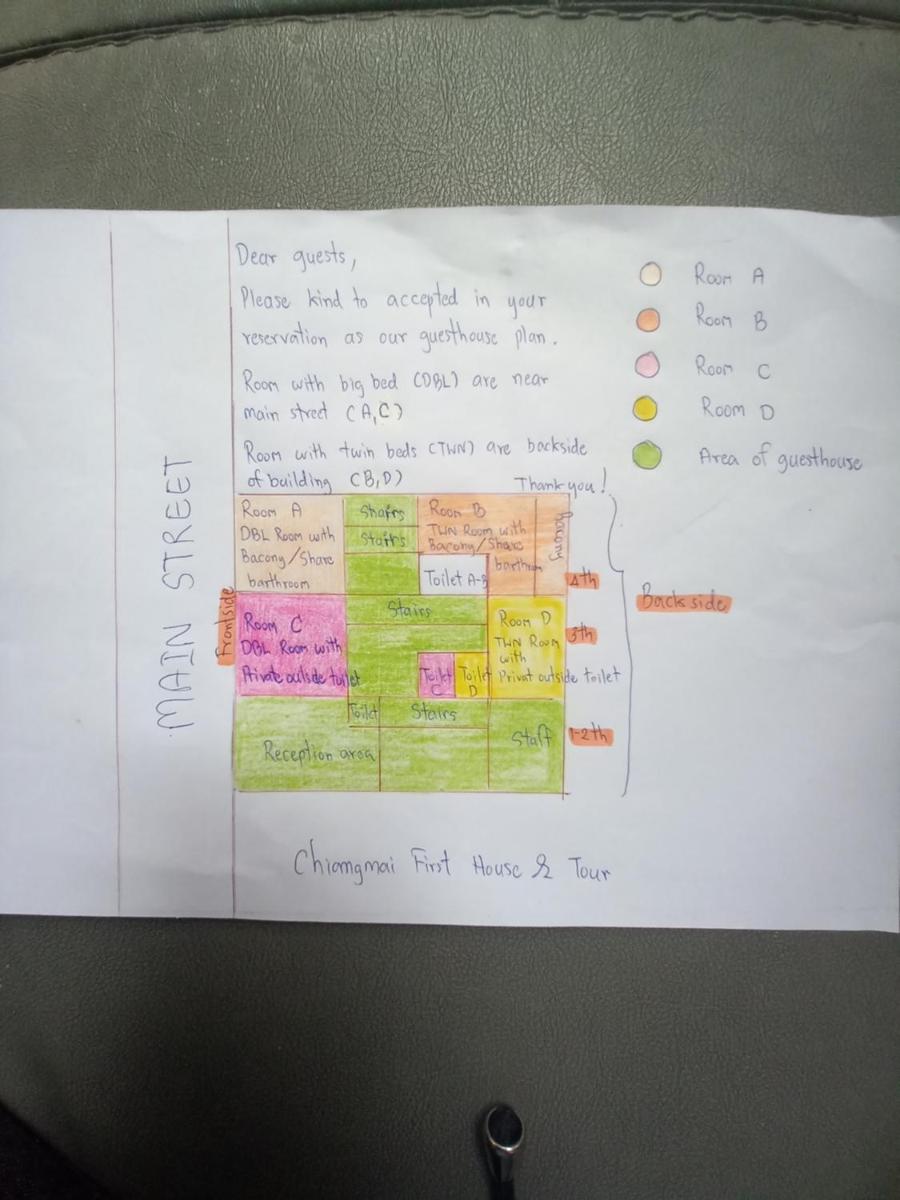 Dear guests,
Please kind to accepted in your
reservation as our guesthouse plan.
Room with big bed (DBL) are near
main street (A,C)
Room with twin beds (TWN) are backside
of building (B,D)
Thank you!
Room A
Room B
Room C
Room D
Area of guesthouse
MAIN STREET
Frontside
Room A
DBL Room with
Bacony/Share
barthroom
Stairs
Stairs
Room B
TWN Room with
Bacony/Share
barthroom
Bacony
Toilet A-B
4th
Room C
DBL Room with
Private outside toilet
Stairs
Toilet
C
Toilet
D
Room D
TWN Room
with
Privat outside toilet
3th
Toilet
Stairs
Reception area
Staff
1-2th
Backside
Chiangmai First House & Tour